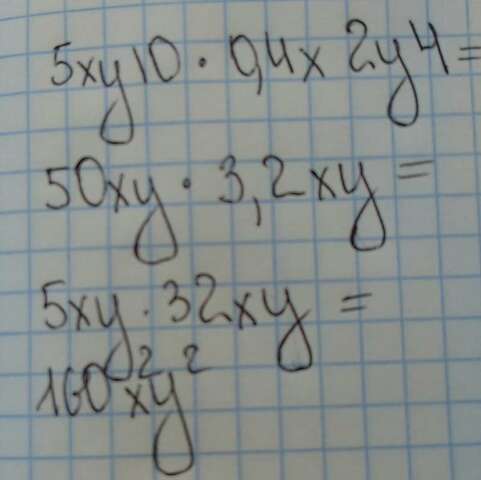 5xy10 · 0,4x 2y4=
50xy · 3,2xy =
5xy · 32xy =
160²xy²